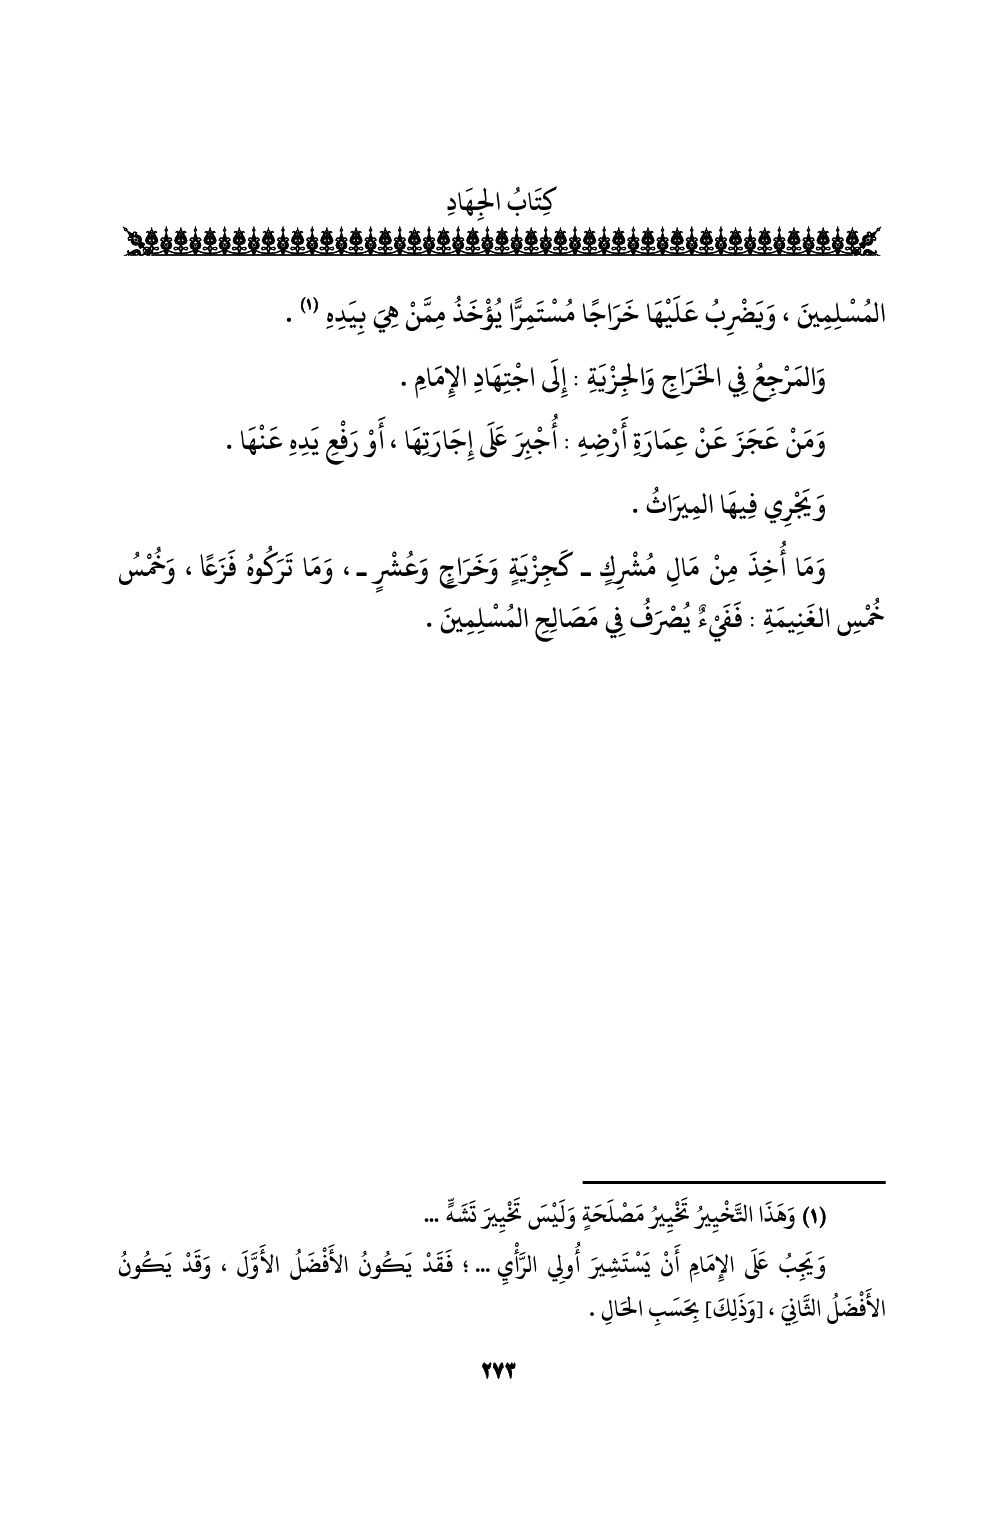 كِتَابُ الجِهَادِ
المُسْلِمِينَ ، وَيَضْرِبُ عَلَيْهَا خَرَاجًا مُسْتَمِرًّا يُؤْخَذُ مِمَّنْ هِيَ بِيَدِهِ (١) .
وَالمَرْجِعُ فِي الخَرَاجِ وَالجِزْيَةِ : إِلَى اجْتِهَادِ الإِمَامِ .
وَمَنْ عَجَزَ عَنْ عِمَارَةِ أَرْضِهِ : أُجْبِرَ عَلَى إِجَارَتِهَا ، أَوْ رَفْعِ يَدِهِ عَنْهَا .
وَيَجْرِي فِيهَا المِيرَاثُ .
وَمَا أُخِذَ مِنْ مَالِ مُشْرِكٍ ـ كَجِزْيَةٍ وَخَرَاجٍ وَعُشْرٍ ـ ، وَمَا تَرَكُوهُ فَزَعًا ، وَخُمْسُ
خُمْسِ الغَنِيمَةِ : فَفَيْءٌ يُصْرَفُ فِي مَصَالِحِ المُسْلِمِينَ .
(١) وَهَذَا التَّخْيِيرُ تَخْيِيرُ مَصْلَحَةٍ وَلَيْسَ تَخْيِيرَ تَشَهٍّ ...
وَيَجِبُ عَلَى الإِمَامِ أَنْ يَسْتَشِيرَ أُولِي الرَّأْيِ ... ؛ فَقَدْ يَكُونُ الأَفْضَلُ الأَوَّلَ ، وَقَدْ يَكُونُ
الأَفْضَلُ الثَّانِيَ ، [وَذَلِكَ] بِحَسَبِ الحَالِ .
٢٧٣